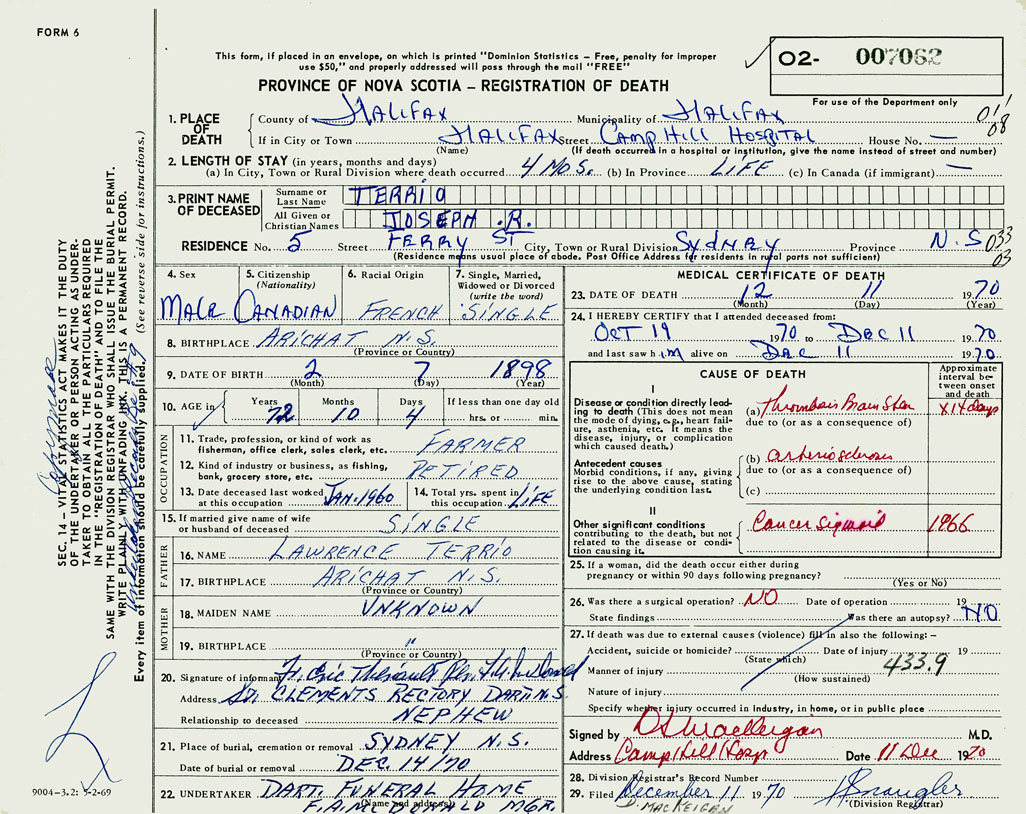 FORM 6
This form, if placed in an envelope, on which is printed "Dominion Statistics – Free, penalty for improper
use $50," and properly addressed will pass through the mail "FREE"
PROVINCE OF NOVA SCOTIA – REGISTRATION OF DEATH
O2- 007062
For use of the Department only
1. PLACE OF DEATH
County of HALIFAX Municipality of HALIFAX
If in City or Town HALIFAX Street CAMP HILL HOSPITAL House No. —
(Name) (If death occurred in a hospital or institution, give the name instead of street and number)
2. LENGTH OF STAY (in years, months and days)
(a) In City, Town or Rural Division where death occurred 4 MOS. (b) In Province LIFE (c) In Canada (if immigrant) —
3. PRINT NAME OF DECEASED
Surname or Last Name TERRIO
All Given or Christian Names JOSEPH .R.
RESIDENCE No. 5 Street FERRY ST City, Town or Rural Division SYDNEY Province N.S 033
03
(Residence means usual place of abode. Post Office Address for residents in rural parts not sufficient)
4. Sex
MALE
5. Citizenship
(Nationality)
CANADIAN
6. Racial Origin
FRENCH
7. Single, Married,
Widowed or Divorced
(write the word)
SINGLE
8. BIRTHPLACE ARICHAT N.S.
(Province or Country)
9. DATE OF BIRTH 2 7 1898
(Month) (Day) (Year)
10. AGE in Years 72 Months 10 Days 4 If less than one day old
hrs. or min.
OCCUPATION
11. Trade, profession, or kind of work as
fisherman, office clerk, sales clerk, etc. FARMER
12. Kind of industry or business, as fishing,
bank, grocery store, etc. RETIRED
13. Date deceased last worked
at this occupation JAN. 1960
14. Total yrs. spent in
this occupation LIFE
15. If married give name of wife
or husband of deceased SINGLE
FATHER
16. NAME LAWRENCE TERRIO
17. BIRTHPLACE ARICHAT N.S.
(Province or Country)
MOTHER
18. MAIDEN NAME UNKNOWN
19. BIRTHPLACE "
(Province or Country)
20. Signature of informant
Address St. CLEMENTS RECTORY DART. N.S.
Relationship to deceased NEPHEW
21. Place of burial, cremation or removal SYDNEY N.S.
Date of burial or removal DEC. 14/70
22. UNDERTAKER DART. FUNERAL HOME
(Name and address)
MGR.
MEDICAL CERTIFICATE OF DEATH
23. DATE OF DEATH 12 11 1970
(Month) (Day) (Year)
24. I HEREBY CERTIFY that I attended deceased from:
OCT 19 1970 to DEC 11 1970
and last saw him alive on DEC 11 1970
CAUSE OF DEATH
Approximate interval between onset and death
I
Disease or condition directly leading
to death (This does not mean
the mode of dying, e.g., heart failure,
asthenia, etc. It means the
disease, injury, or complication
which caused death.)
(a) Thrombosis Brain Stem X14 days
due to (or as a consequence of)
Antecedent causes
Morbid conditions, if any, giving
rise to the above cause, stating
the underlying condition last.
(b) arteriosclerosis
due to (or as a consequence of)
(c)
II
Other significant conditions
contributing to the death, but not
related to the disease or condition
causing it.
Cancer Sigmoid 1966
25. If a woman, did the death occur either during
pregnancy or within 90 days following pregnancy?
(Yes or No)
26. Was there a surgical operation? NO Date of operation 19
State findings Was there an autopsy? NO
27. If death was due to external causes (violence) fill in also the following: –
Accident, suicide or homicide? Date of injury 19
(State which)
Manner of injury 433.9
(How sustained)
Nature of injury
Specify whether injury occurred in industry, in home, or in public place
Signed by M.D.
Address Camp Hill Hosp Date 11 Dec 1970
28. Division Registrar's Record Number
29. Filed December 11 1970
(Division Registrar)
D. MACKEIGAN
011
08
SEC. 14 – VITAL STATISTICS ACT MAKES IT THE DUTY
OF THE UNDERTAKER OR PERSON ACTING AS UNDERTAKER
"TO OBTAIN ALL THE PARTICULARS REQUIRED
IN THE "REGISTRATION OF DEATH" AND TO FILE THE
SAME WITH THE DIVISION REGISTRAR WHO SHALL ISSUE THE BURIAL PERMIT.
WRITE PLAINLY WITH UNFADING INK. THIS IS A PERMANENT RECORD.
Every item of information should be carefully supplied. (See reverse side for instructions.)
9004-3.2: 5-2-69